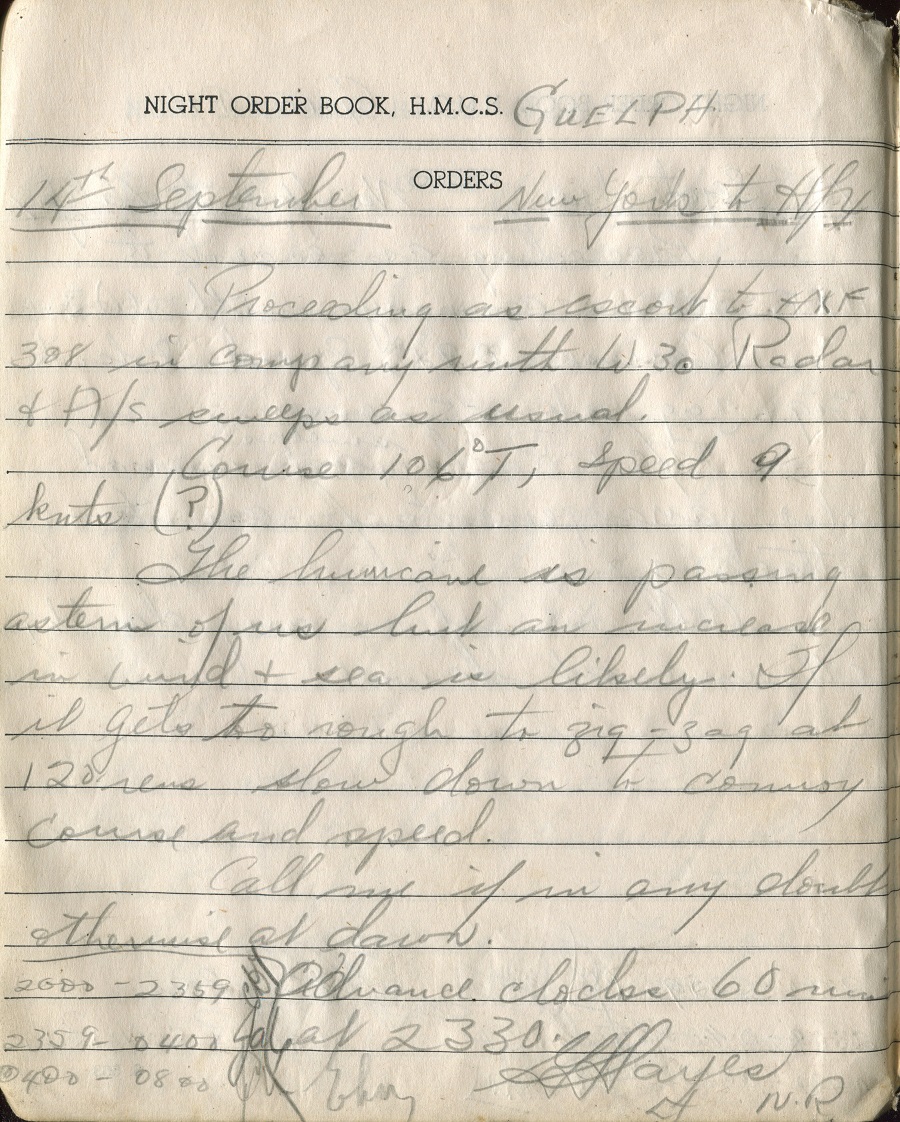 NIGHT ORDER BOOK, H.M.C.S. GUELPH
ORDERS
14th September New York to Hfx
Proceeding as escort to HXF
308 in company with W 30 Radar
& A/S sweeps as usual.
Course 106°T, Speed 9
knts (?)
The hurricane is passing
astern of us but an increase
in wind + sea is likely. If
it gets too rough to zig-zag at
120 revs slow down to convoy
course and speed.
Call me if in any doubt
otherwise at dawn.
2000 - 2359 Advance clocks 60 min
2359 - 0400 at 2330.
0400 - 0800 Hayes
N.R.